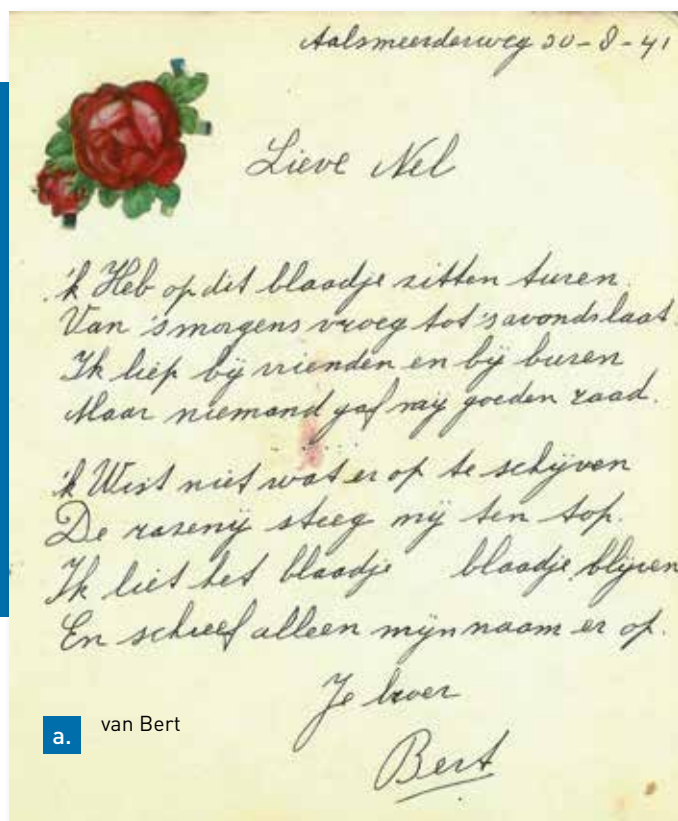 Aalsmeerderweg 30-8-41
Lieve Nel
'k Heb op dit blaadje zitten turen.
Van 'smorgens vroeg tot 'savondslaat.
Ik liep bij vrienden en bij buren
Maar niemand gaf mij goeden raad.
'k Wist niet wat er op te schijven
De razenij steeg mij ten top.
Ik liet het blaadje blaadje blijven
En schreef alleen mijn naam er op.
Je broer
Bert
a. van Bert